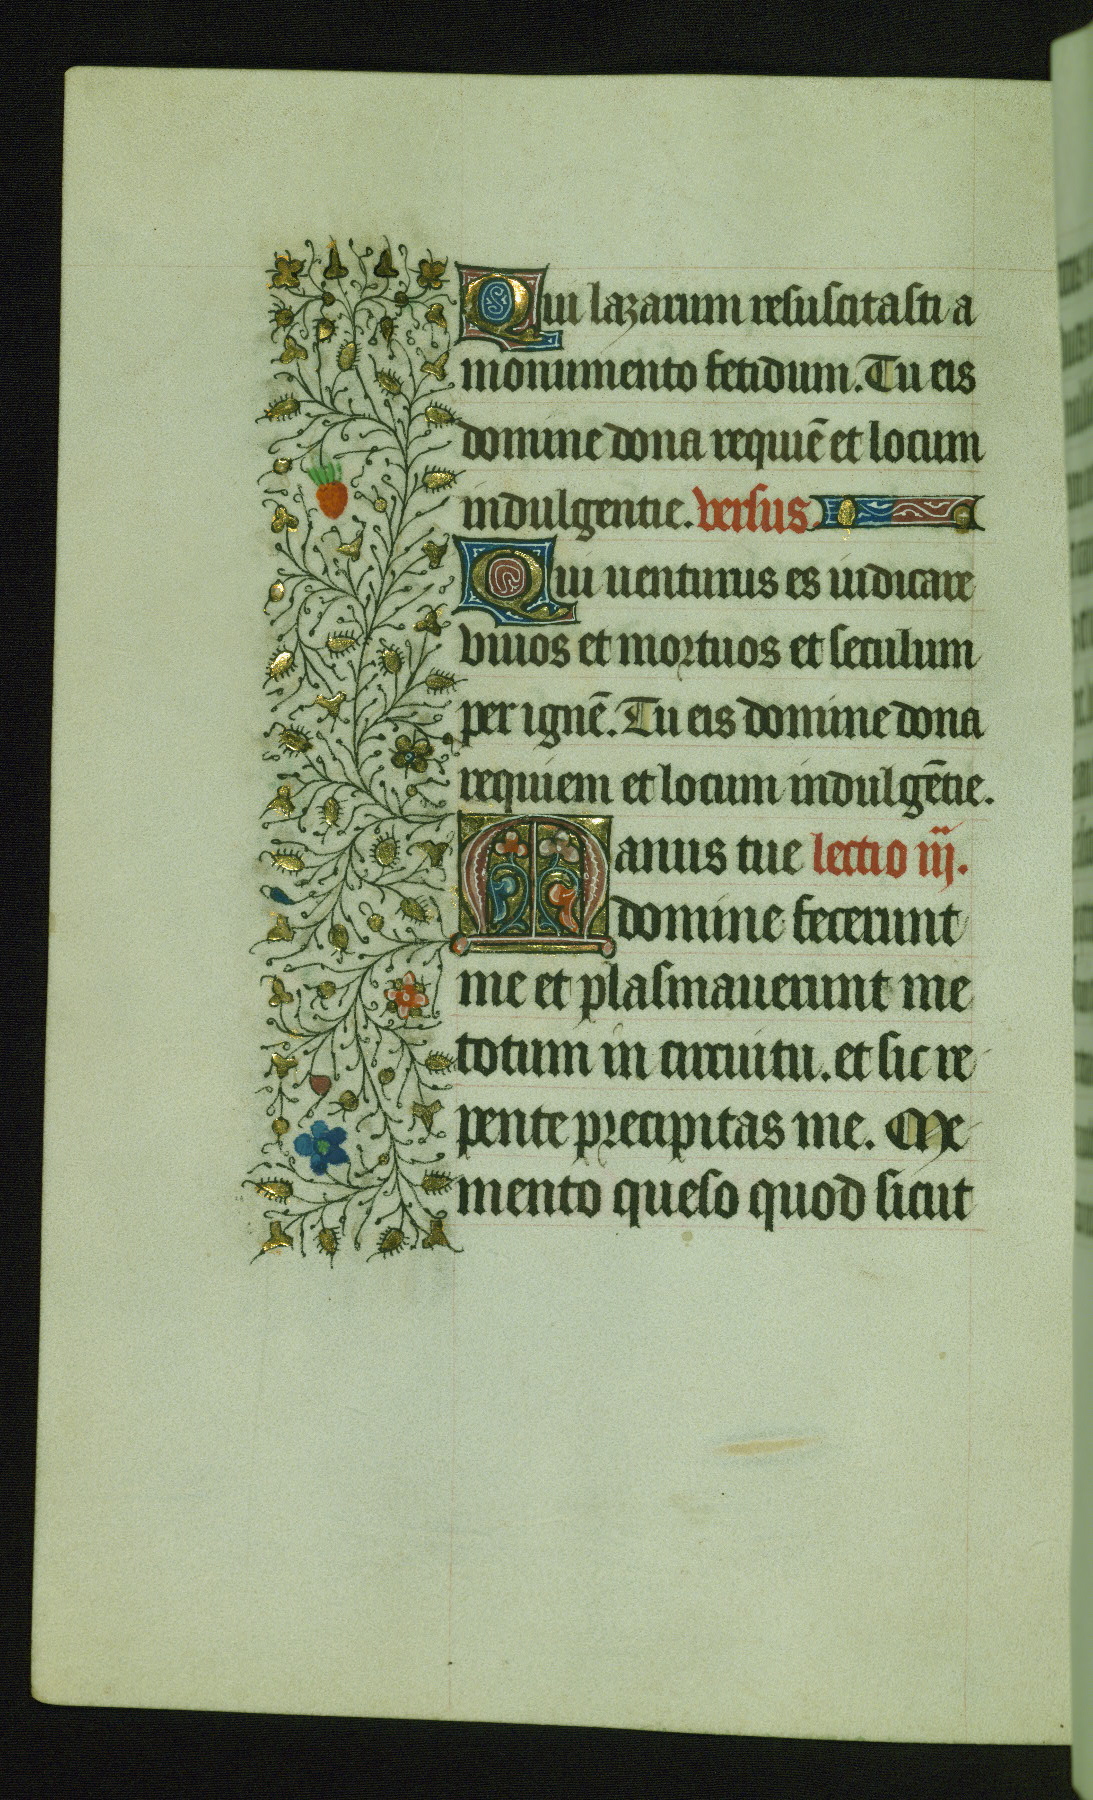 Qui lazarum resuscitasti a
monumento fetidum. Tu eis
domine dona requiē et locum
indulgentie. versus.
Qui uenturus es iudicare
viuos et mortuos et seculum
per ignē. Tu eis domine dona
requiem et locum indulgētie.
Manus tue lectio iij.
domine fecerunt
me et plasmauerunt me
totum in circuitu. et sic re
pente precipitas me. Me
mento queso quod sicut